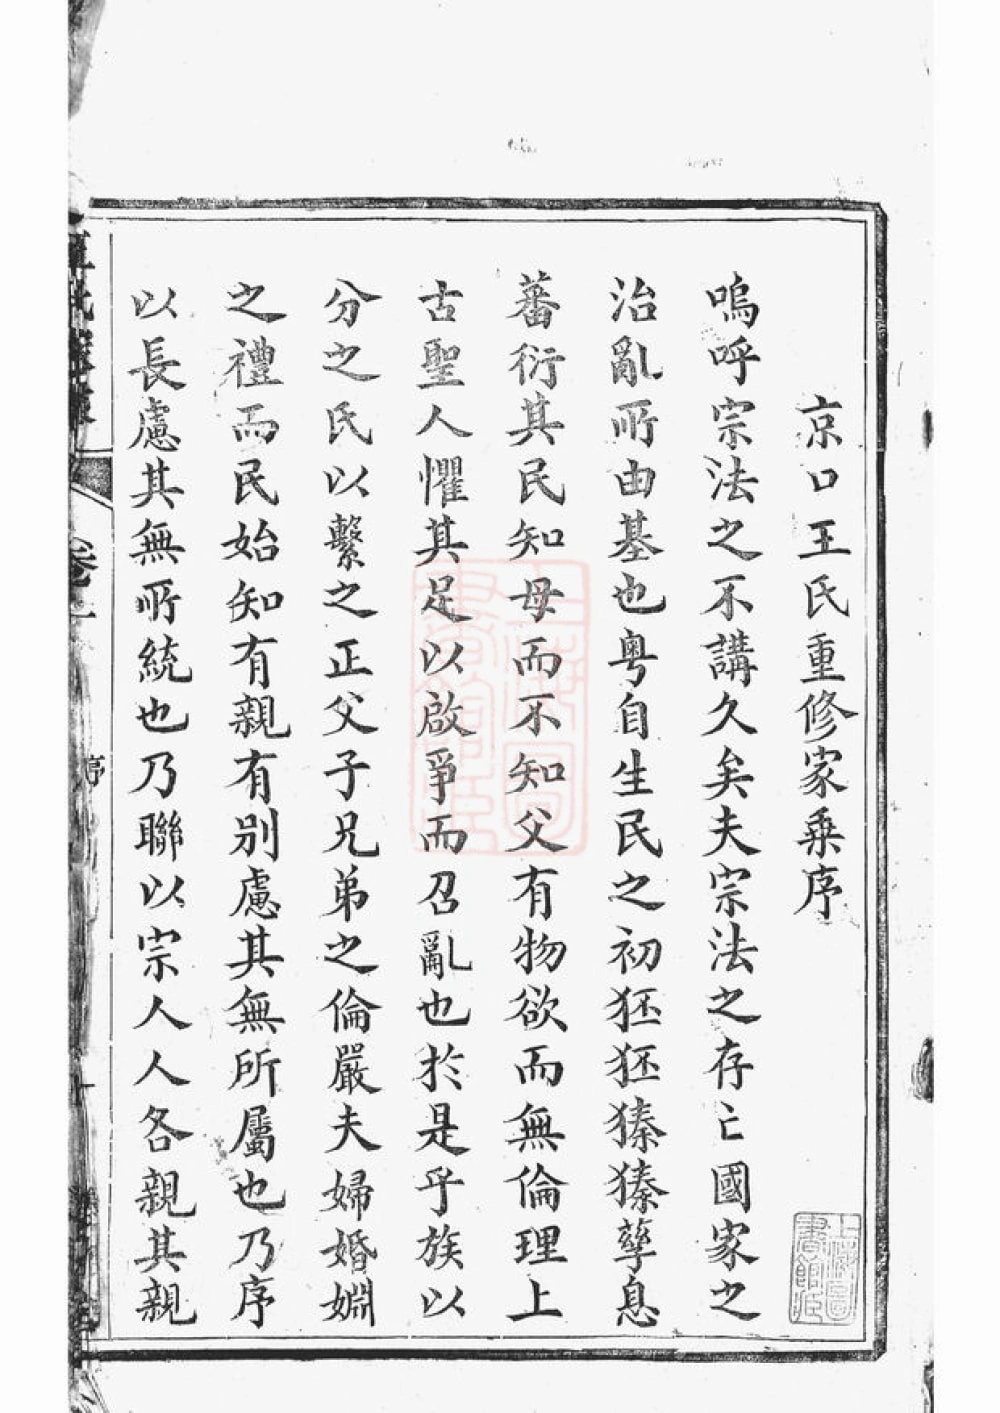 京口王氏重修家乗序
嗚呼宗法之不講久矣夫宗法之存亡國家之
治亂所由基也粤自生民之初狉狉獉獉孳息
蕃衍其民知母而不知父有物欲而無倫理上
古聖人懼其足以啟爭而召亂也於是乎族以
分之氏以繫之正父子兄弟之倫嚴夫婦婚婣
之禮而民始知有親有别慮其無所屬也乃序
以長慮其無所統也乃聯以宗人人各親其親
卷一
序
上海圖
書館臧
上海圖
書館臧